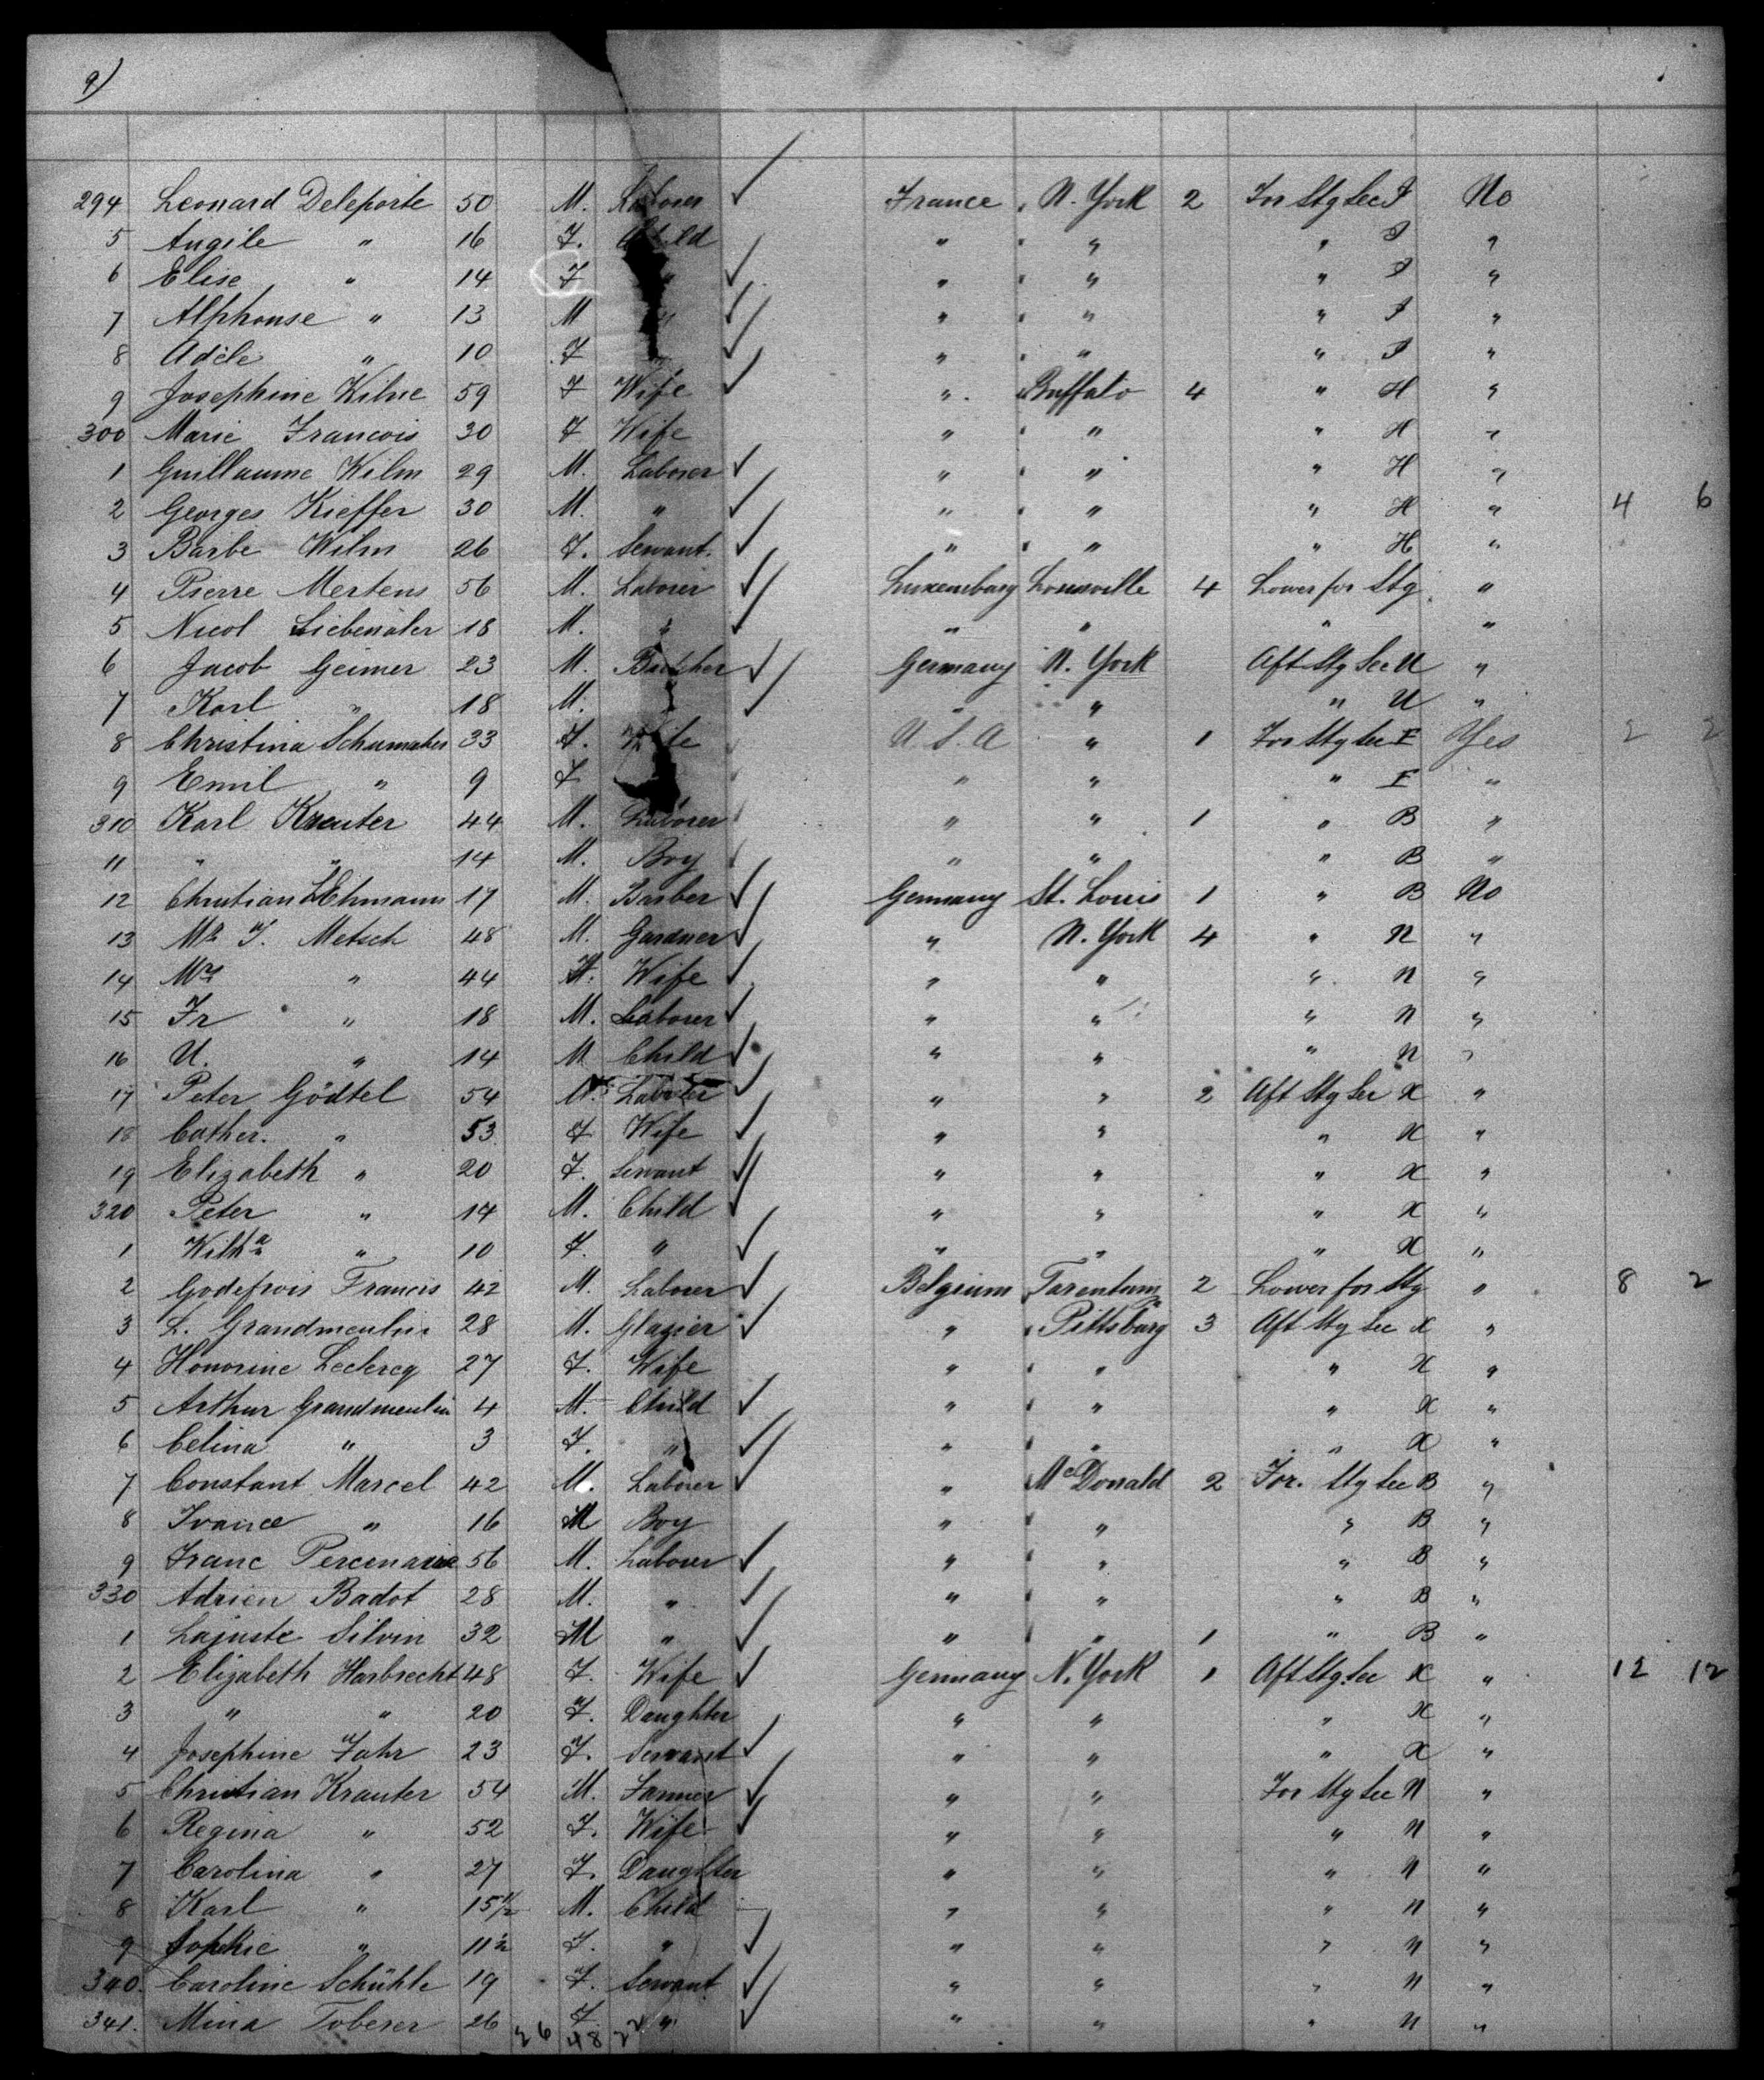 9)
294 Leonard Deleporte 50 M. Laborer France N. York 2 For Stg Sec I No
5 Angile " 16 F. Child " " " I "
6 Elise " 14 F " " " " I "
7 Alphonse " 13 M " " " " I "
8 Adèle " 10 F " " " " I "
9 Josephine Kilne 59 F Wife " Buffalo 4 " H "
300 Marie Francois 30 F Wife " " " H "
1 Guillaume Wilm 29 M. Laborer " " " H "
2 Georges Kieffer 30 M. " " " " H " 4 6
3 Barbe Wilm 26 F. Servant. " " " H "
4 Pierre Mertens 56 M. Laborer Luxemburg Louisville 4 Lower for Stg. "
5 Nicol Liebenaler 18 M. " " " " "
6 Jacob Geimer 23 M. Butcher Germany N. York Aft Stg Sec U "
7 Karl " 18 M. " " " " U "
8 Christina Schumaker 33 F. Wife U. S. A " 1 For Stg Sec F Yes 2 2
9 Emil " 9 F " " " F "
310 Karl Krauter 44 M. Laborer " " 1 " B "
11 " " 14 M. Boy " " " B "
12 Christian Lehmann 17 M. Barber Germany St. Louis 1 " B No
13 Mr J. Metsch 48 M. Gardner " N. York 4 " N "
14 Mrs " 44 F. Wife " " " N "
15 Fr " 18 M. Laborer " " " N "
16 U. " 14 M Child " " " N "
17 Peter Gödtel 54 M. Laborer " " 2 Aft Stg Sec X "
18 Cather. " 53 F Wife " " " X "
19 Elizabeth " 20 F. Servant " " " X "
320 Peter " 14 M. Child " " " X "
1 Wilha " 10 F. " " " " X "
2 Godefrois Francis 42 M. Laborer Belgium Tarentum 2 Lower for Stg " 8 2
3 L. Grandmoulin 28 M. Glazier " Pittsburg Pa 3 Aft Stg Sec X "
4 Honorine Leclercq 27 F. Wife " " " X "
5 Arthur Grandmoulin 4 M. Child " " " X "
6 Celina " 3 F. " " " " X "
7 Constant Marcel 42 M. Laborer " McDonald 2 For. Stg Sec B "
8 Ivance " 16 M Boy " " " B "
9 Franc 56 M. Laborer " " " B "
330 Adrien Badot 28 M. " " " " B "
1 Lajuste Silvin 32 M " " " 1 " B "
2 Elizabeth Harbrecht 48 F. Wife Germany N. York 1 Aft Stg. Sec X " 12 12
3 " " 20 F. Daughter " " " X "
4 Josephine Fahr 23 F. Servant " " " X "
5 Christian Krauter 54 M. Farmer " " For Stg Sec N "
6 Regina " 52 F. Wife " " " N "
7 Carolina " 27 F. Daughter " " " N "
8 Karl " 15 1/2 M. Child " " " N "
9 Sophie " 11 1/2 F. " " " " N "
340. Caroline Schühle 19 F. Servant " " " N "
341. Mina Toberer 26 F. " " " " N "
26 48 22